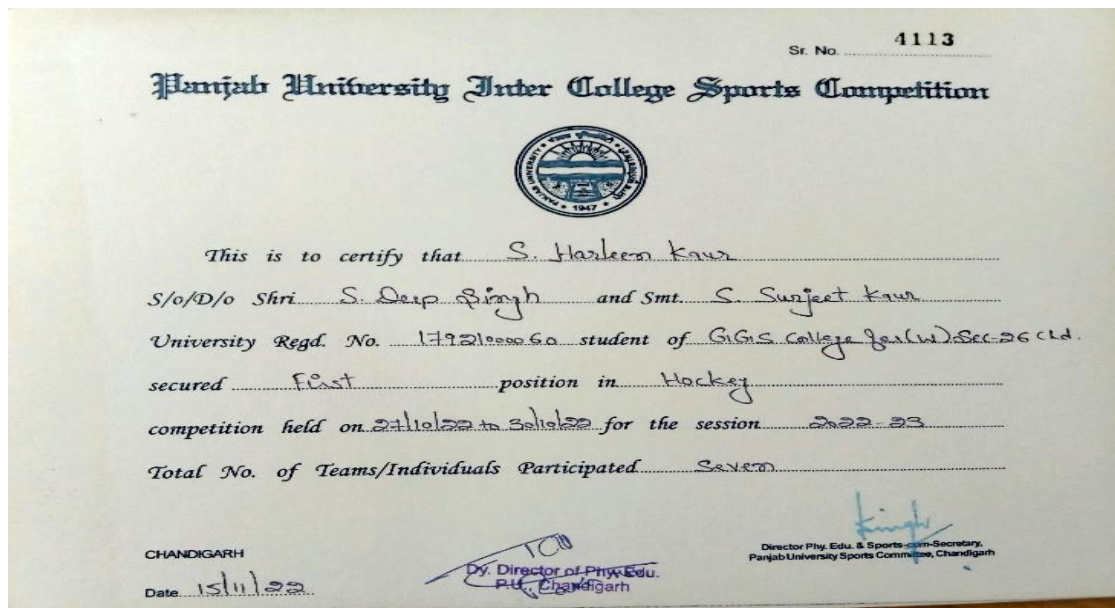 Sr. No. 4113
Panjab University Inter College Sports Competition
PANJAB UNIVERSITY
1947
This is to certify that S. Harleen Kaur
S/o/D/o Shri S. Deep Singh and Smt. S. Surjeet Kaur
University Regd. No. 17921000060 student of GGS College for (W) Sec-26 Chd.
secured First position in Hockey
competition held on 27/10/22 to 30/10/22 for the session 2022-23
Total No. of Teams/Individuals Participated Seven
CHANDIGARH
Date 15/11/22
Dy. Director of Phy. Edu.
P.U., Chandigarh
Director Phy. Edu. & Sports-cum-Secretary,
Panjab University Sports Committee, Chandigarh